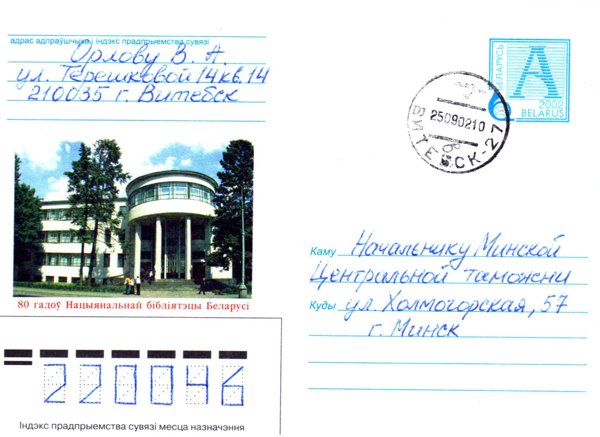 адрас адпраўшчыка, індэкс прадпрыемства сувязі
Орлову В. А.
ул. Терешковой 14 кв. 14
210035 г. Витебск
БЕЛАРУСЬ
A
2002
BELARUS
25090210
ВИТЕБСК-27
80 гадоў Нацыянальнай бібліятэцы Беларусі
Каму Начальнику Минской
Центральной таможни
Куды ул. Холмогорская, 57
г. Минск
220046
Індэкс прадпрыемства сувязі месца назначэння